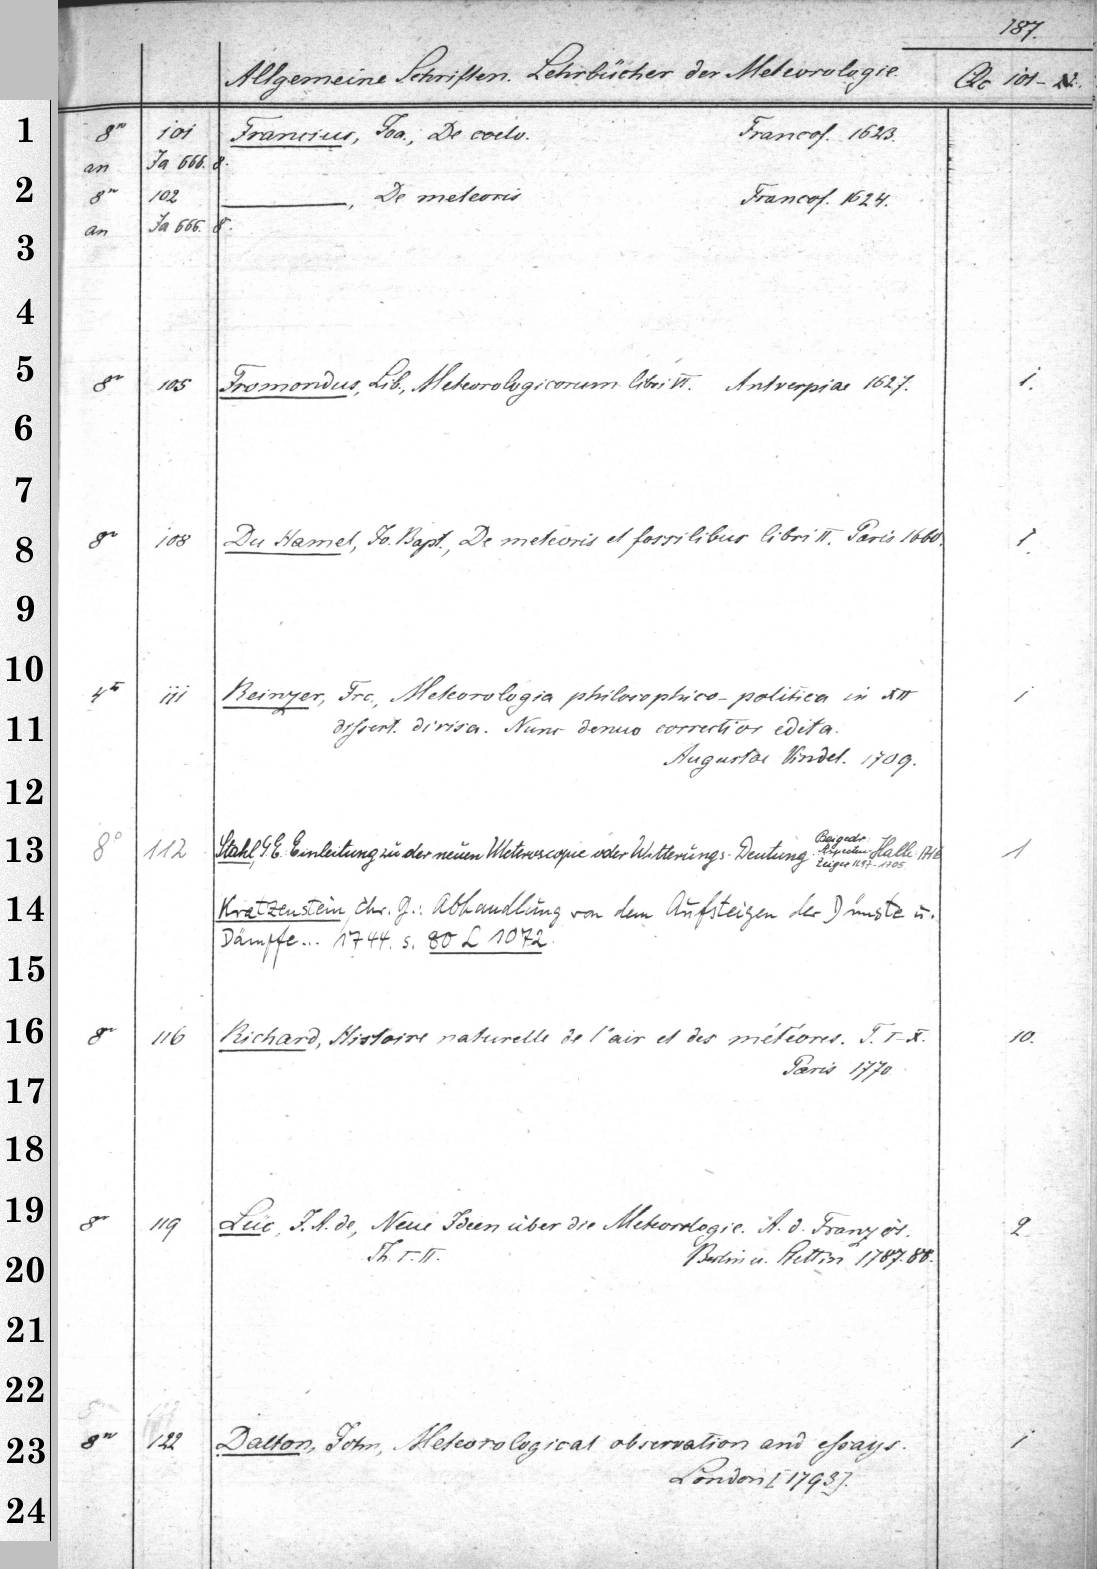 187.
Allgemeine Schriften. Lehrbücher der Meteorologie. Qc 101-
1 8º 101 Francius, Joa., De coelo. Francof. 1623.
an Ja 666. 8.
2 8º 102 ———, De meteoris Francof. 1624.
an Ja 666. 8.
3
4
5 8º 105 Fromondus, Lib., Meteorologicorum libri VI. Antverpiae 1627. 1.
6
7
8 8º 108 Du Hamel, Jo. Bapt., De meteoris et fossilibus libri II. Paris 1660. 1.
9
10 4to 111 Reinzer, Frc., Meteorologia philosophico-politica in XII 1
11 dissert. divisa. Nunc denuo correctior edita.
Augustae Vindel. 1709.
12
13 8º 112 Stahl, G E: Einleitung zu der neuen Meteroscopie oder Witterungs-Deutung Beigedr. Halle 1716 1
zeiger 1697-1705
14 Kratzenstein, Chr. G.: Abhandlung von dem Aufsteigen der Dünste u.
Dämpfe... 1744. s. 80 L 1072.
15
16 8º 116 Richard, Histoire naturelle de l'air et des météores. T. I-X. 10.
Paris 1770
17
18
19 8º 119 Luc, J. A. de, Neue Ideen über die Meteorologie. A. d. Französ. 2
20 Th. I-II. Berlin u. Stettin 1787-88.
21
22
23 8º 122 Dalton, John, Meteorological observation and essays. 1
London [1793].
24